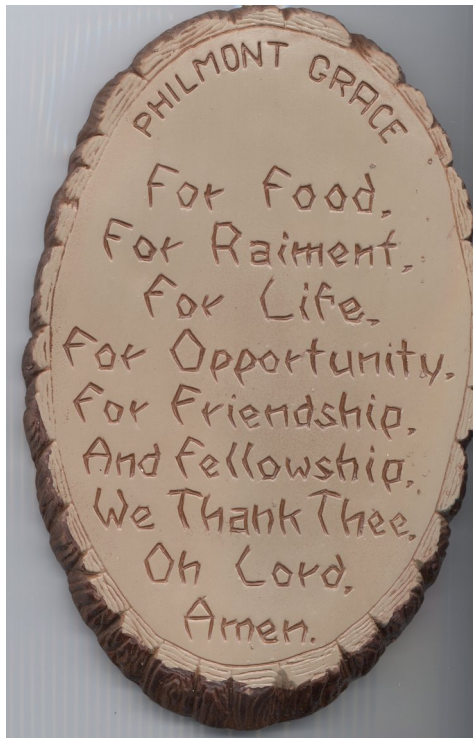 PHILMONT GRACE
For Food,
For Raiment,
For Life,
For Opportunity,
For Friendship,
And Fellowship,
We Thank Thee,
Oh Lord,
Amen.